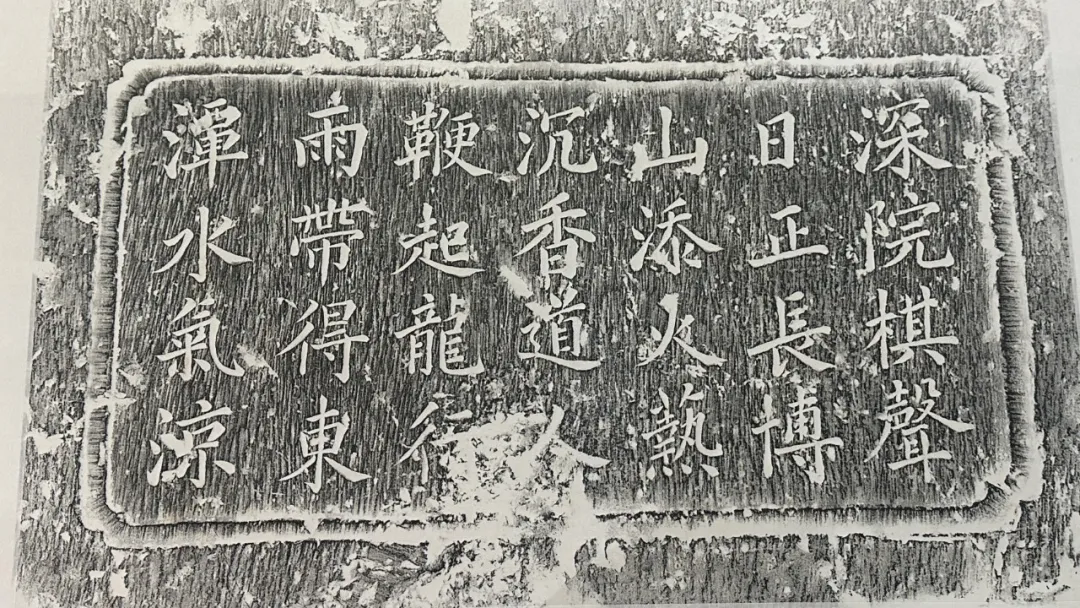 深院棋聲
日正長博
山添火爇
沉香道人
鞭起龍行
雨帶得東
潭水氣涼